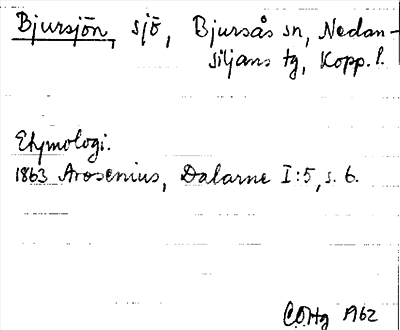 Bjursjön, sjö, Bjursås sn, Nedan-
siljans tg, Kopp. l.
Etymologi.
1863 Arosenius, Dalarne I:5, s. 6.
COHg 1962